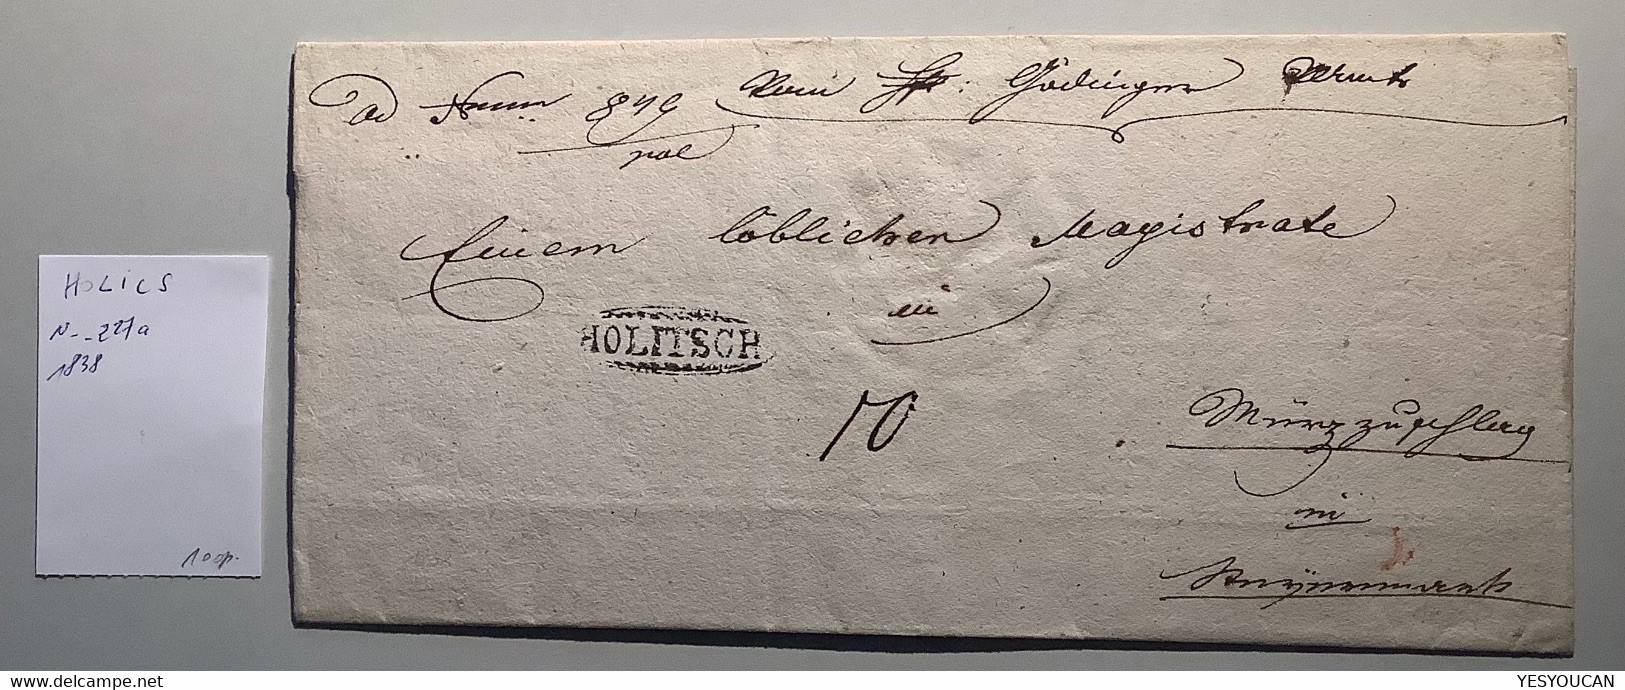 ad Num 849 Vom Hft: Gödinger Amts
pol
Einem löblichen Magistrate
in
HOLITSCH
10
Mürzzuschlag
in
Steyermark
HOLICS
N- -227a
1838
100p.
N- -227a
1838
YESYOUCAN